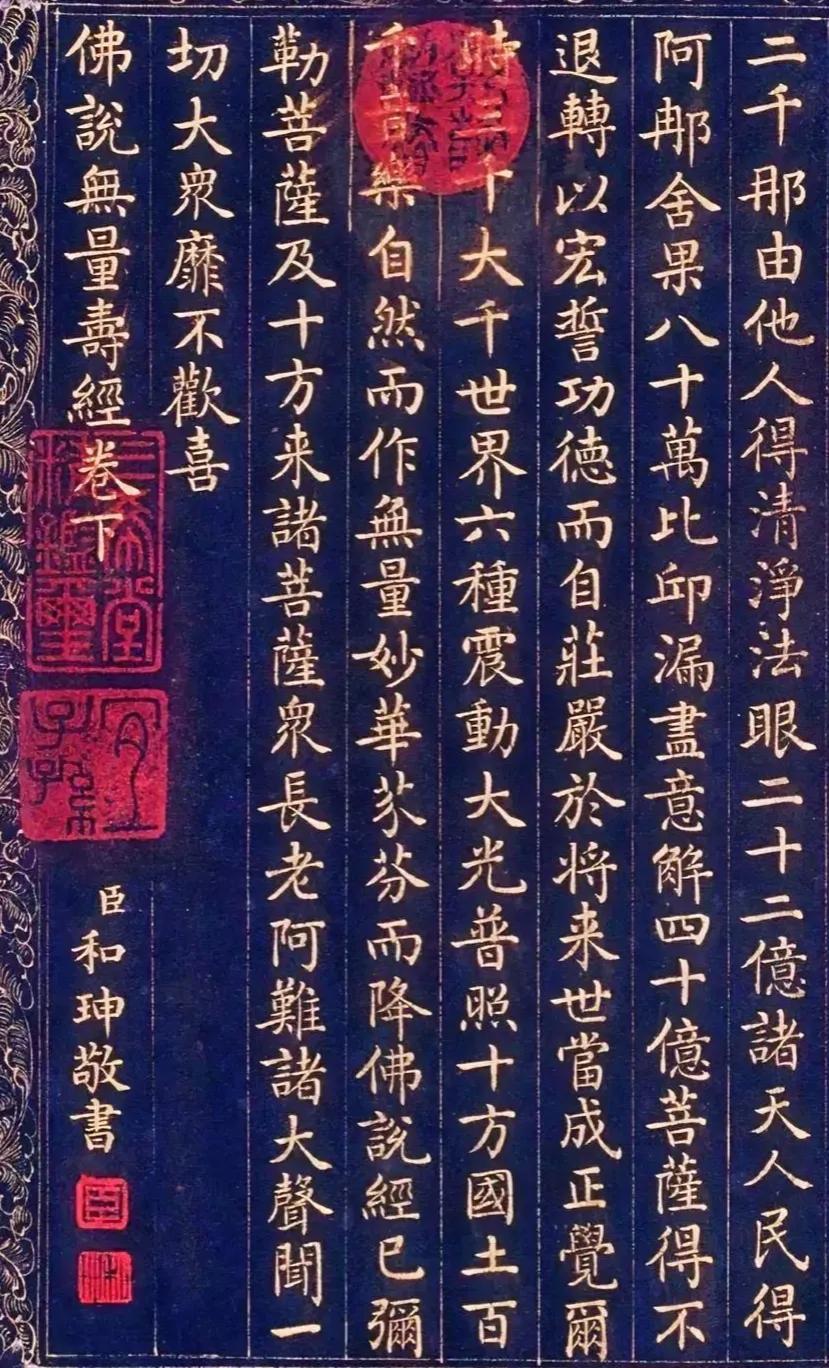 二千那由他人得清淨法眼二十二億諸天人民得
阿那舍果八十萬比邱漏盡意解四十億菩薩得不
退轉以宏誓功德而自莊嚴於將来世當成正覺爾
時三千大千世界六種震動大光普照十方國土百
千音樂自然而作無量妙華芬芬而降佛說經已彌
勒菩薩及十方来諸菩薩衆長老阿難諸大聲聞一
切大衆靡不歡喜
佛說無量壽經卷下
三希堂精鑑璽
宜子孫
臣和珅敬書
臣
和